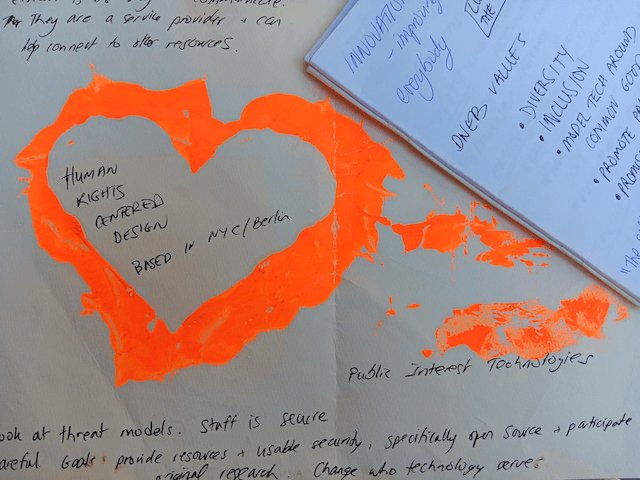 They are a service provider + can
help connect to other resources.
HUMAN
RIGHTS
CENTERED
DESIGN
BASED IN NYC/Berlin
Public Interest Technologies
look at threat models. Staff is secure
careful. Goals: provide resources + usable security, specifically open source + participate
original research. Change who technology serves
INNOVATION
- improving
everybody
THE
VALUES
• DIVERSITY
• INCLUSION
• MODEL TECH AROUND
COMMON GOOD
• PROMOTE
"The